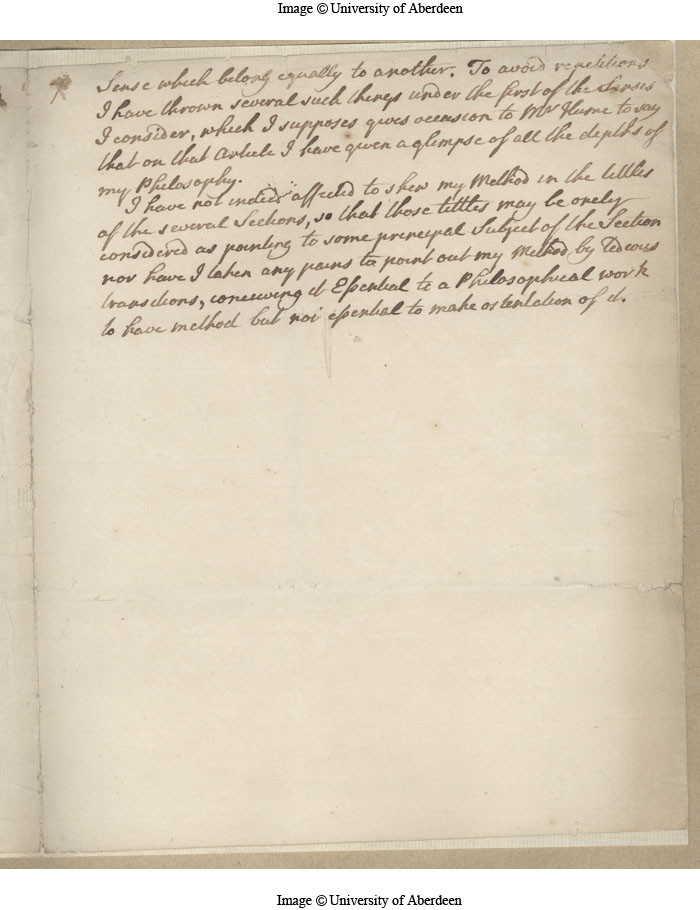 Image © University of Aberdeen
Sense which belong equally to another. To avoid repetitions
I have thrown several such things under the first of the Senses
I consider, which I supposes gives occasion to Mr Hume to say
that on that Article I have given a glimpse of all the depths of
my Philosophy.
I have not indeed affected to shew my Method in the tittles
of the several Sections, so that those tittles may be onely
considered as pointing to some principal Subject of the Section
nor have I taken any pains to point out my Method by Tedious
transitions, conceiving it Essential to a Philosophical work
to have method but not essential to make ostentation of it.
Image © University of Aberdeen